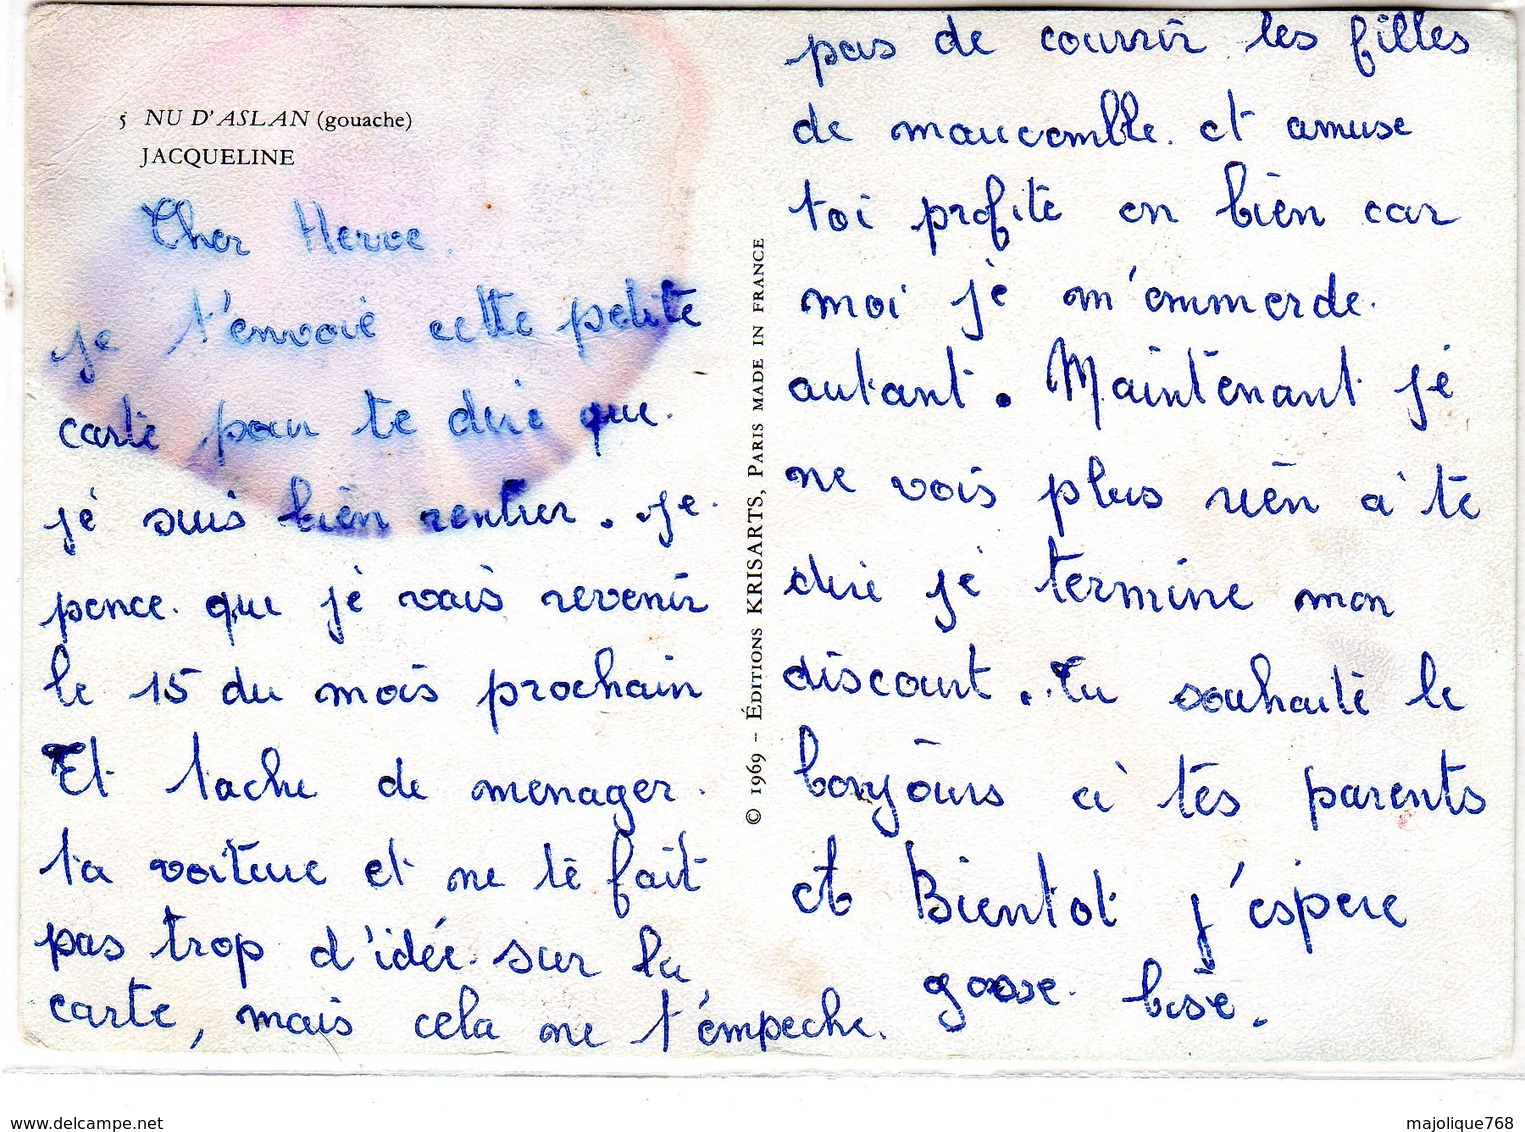 5 NU D'ASLAN (gouache)
JACQUELINE
Cher Herve.
je t'envoie cette petite
carte pour te dire que.
je suis bien rentrer. je.
pence. que je vais revenir
le 15 du mois prochain
Et tache de menager.
ta voiture et ne te fait
pas trop d'idée. sur la
carte, mais cela ne t'empeche.
© 1969 - ÉDITIONS KRISARTS, PARIS MADE IN FRANCE
pas de courrir les filles
de maucomble. et amuse
toi profite en bien car
moi je m'emmerde.
autant. Maintenant je
ne vois plus rien a te
dire je termine mon
discourt. Tu souhaite le
bonjours a tes parents
et Bientot j'espere
grosse. bise.
www.delcampe.net
majolique768